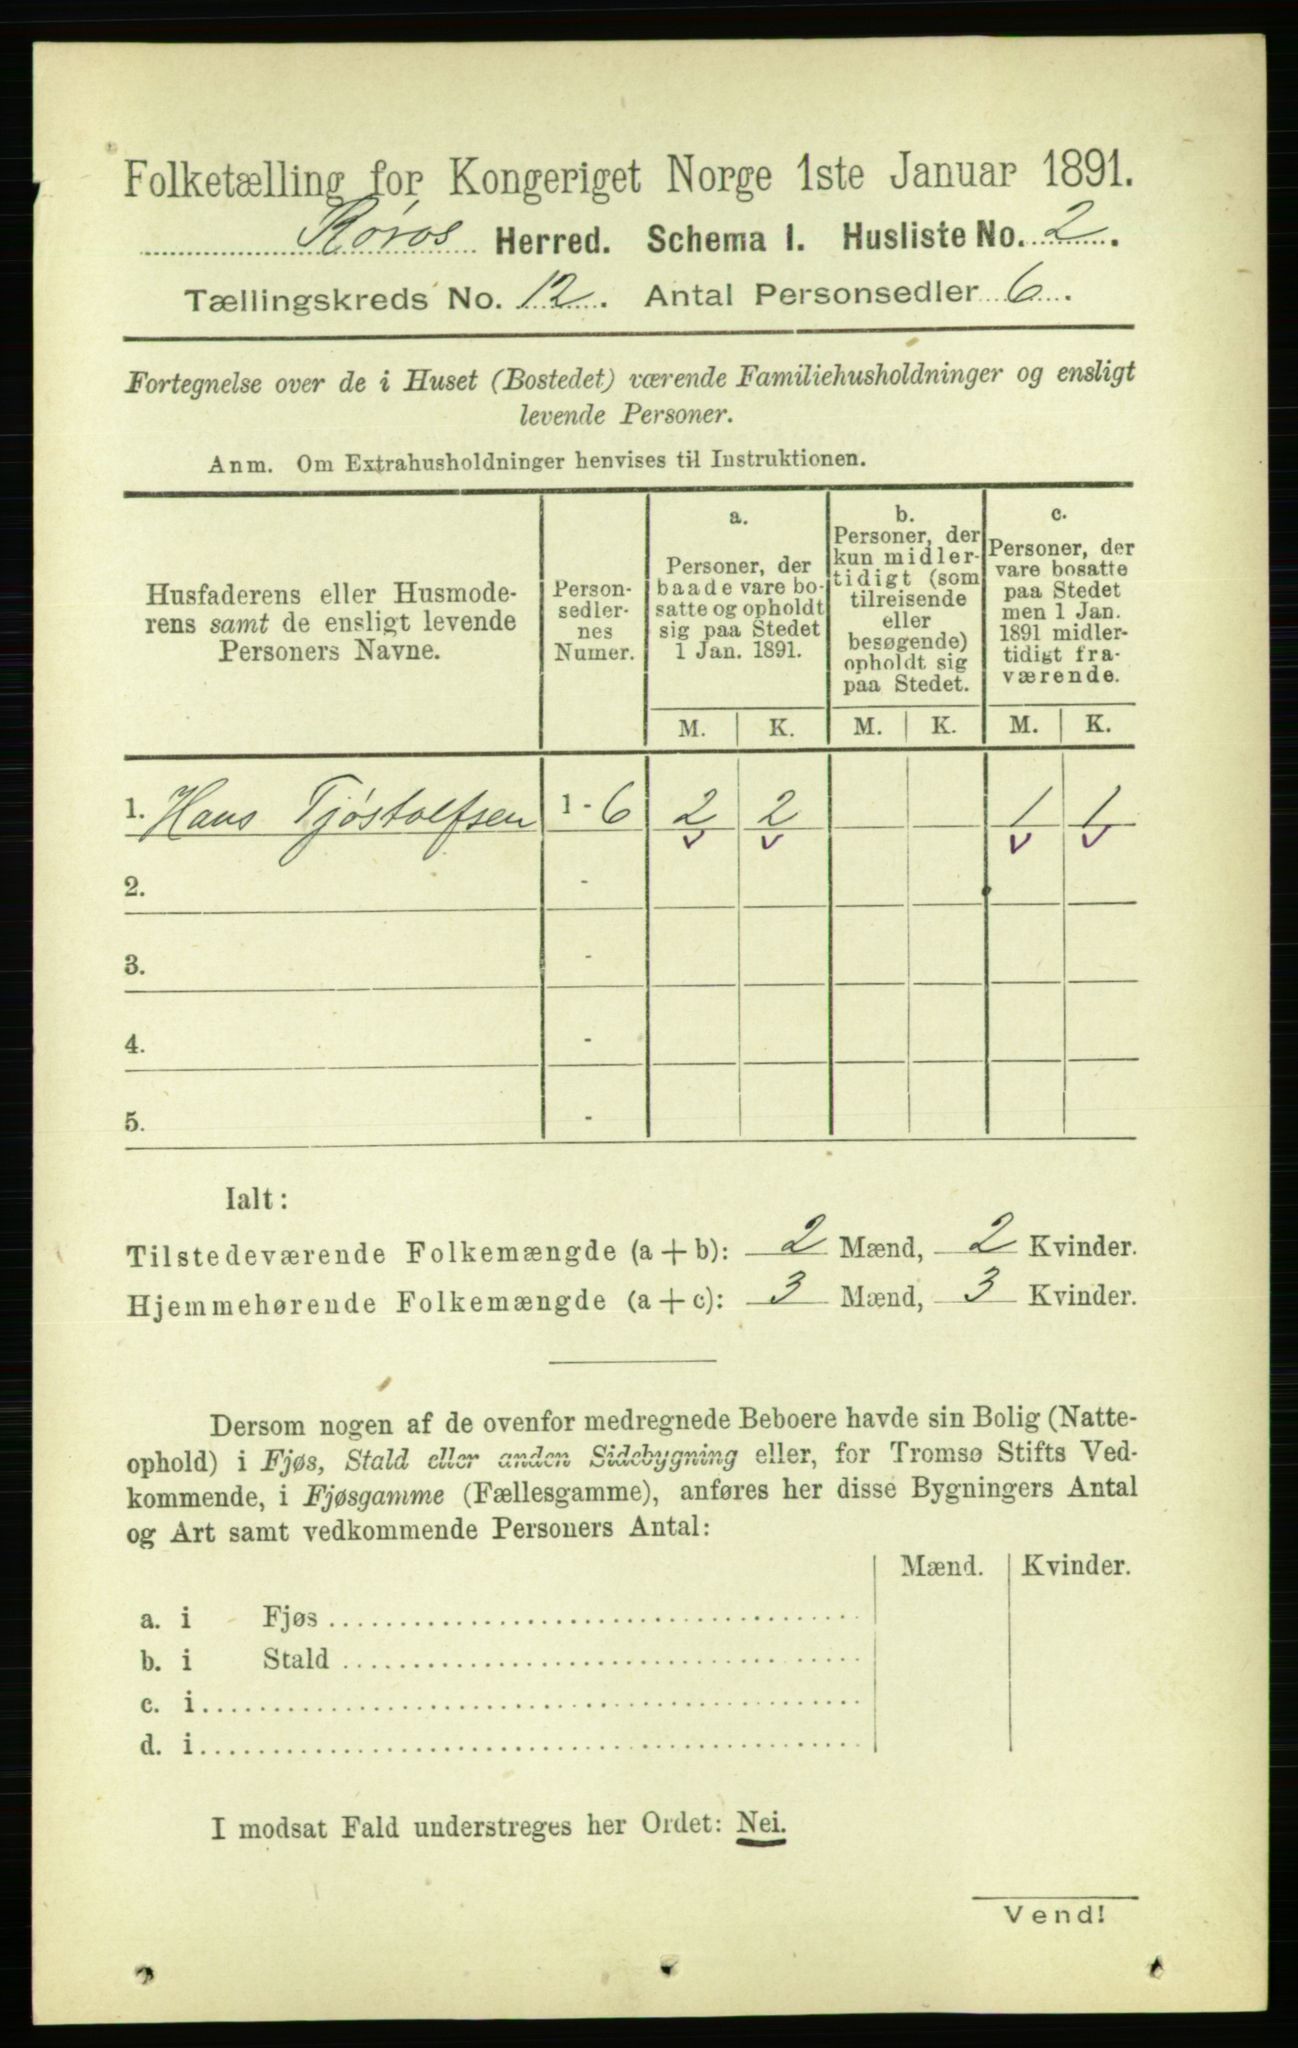 Folketælling for Kongeriget Norge 1ste Januar 1891.
Røros Herred. Schema I. Husliste No. 2.
Tællingskreds No. 12. Antal Personsedler 6.
Fortegnelse over de i Huset (Bostedet) værende Familiehusholdninger og ensligt
levende Personer.
Anm. Om Extrahusholdninger henvises til Instruktionen.
Husfaderens eller Husmode-
rens samt de ensligt levende
Personers Navne.
Person-
sedler-
nes
Numer.
a.
Personer, der
baade vare bo-
satte og opholdt
sig paa Stedet
1 Jan. 1891.
b.
Personer, der
kun midler-
tidigt (som
tilreisende
eller
besøgende)
opholdt sig
paa Stedet.
c.
Personer, der
vare bosatte
paa Stedet
men 1 Jan.
1891 midler-
tidigt fra-
værende.
M. K. M. K. M. K.
1. Hans Tjøstolfsen 1 - 6 2 2 1 1
2. -
3. -
4. -
5. -
Ialt:
Tilstedeværende Folkemængde (a + b): 2 Mænd, 2 Kvinder.
Hjemmehørende Folkemængde (a + c): 3 Mænd, 3 Kvinder.
Dersom nogen af de ovenfor medregnede Beboere havde sin Bolig (Natte-
ophold) i Fjøs, Stald eller anden Sidebygning eller, for Tromsø Stifts Ved-
kommende, i Fjøsgamme (Fællesgamme), anføres her disse Bygningers Antal
og Art samt vedkommende Personers Antal:
Mænd. Kvinder.
a. i Fjøs
b. i Stald
c. i
d. i
I modsat Fald understreges her Ordet: Nei.
Vend!